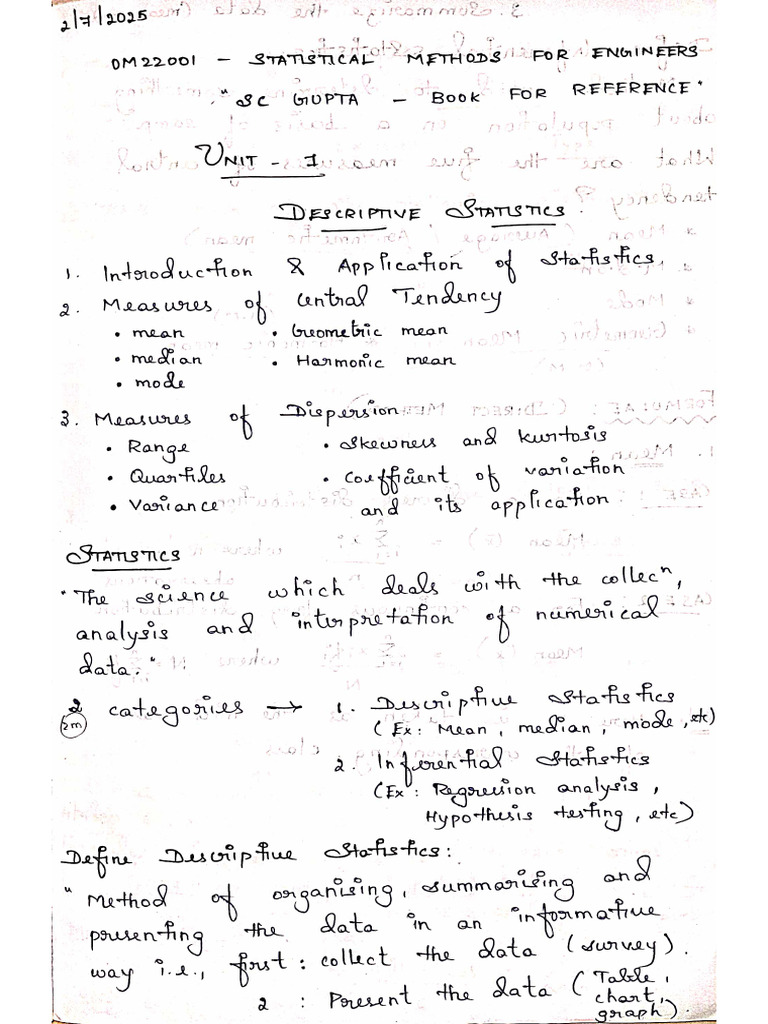 2/7/2025
OM22001 - STATISTICAL METHODS FOR ENGINEERS
"SC GUPTA - BOOK FOR REFERENCE"
UNIT - 1
DESCRIPTIVE STATISTICS.
1. Introduction & Application of Statistics.
2. Measures of Central Tendency
• mean • Geometric mean
• median • Harmonic mean
• mode
3. Measures of Dispersion
• Range • Skewness and kurtosis
• Quartiles • Coefficient of variation
• Variance and its application.
STATISTICS
"The science which deals with the collecⁿ,
analysis and interpretation of numerical
data."
2 categories → 1. Descriptive Statistics
2m (Ex: Mean, median, mode, etc)
2. Inferential Statistics
(Ex: Regression analysis,
Hypothesis testing, etc)
Define Descriptive Statistics:
"Method of organising, summarising and
presenting the data in an informative
way i.e., first: collect the data (survey).
2 : Present the data (Table,
chart,
graph).